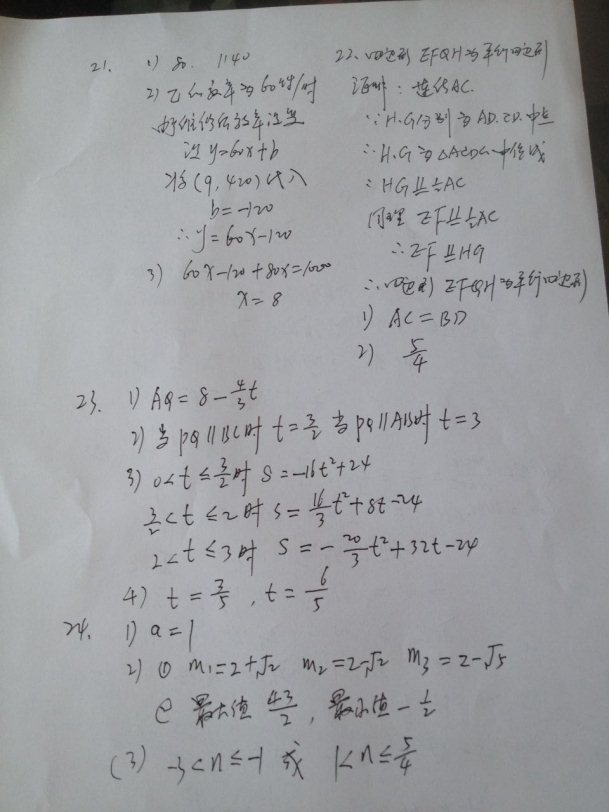 21. 1) 80. 1140
2) 乙的效率为60件/时
设 y=60x+b
将(9,420)代入
b=-120
∴ y=60x-120
3) 60x-120+80x=1000
x=8
22. 四边形 EFGH为平行四边形
证明：连结AC.
∵ H.G分别为AD.CD.中点
∴ H.G为△ACD 中位线
∴ HG∥=½AC
同理 EF∥=½AC
∴ EF∥=HG
∴ 四边形 EFGH为平行四边形
1) AC=BD
2) 5/4
23. 1) AQ=8-4/3t
2) 当PQ∥BC时 t=3/2 当PQ∥AB时 t=3
3) 0<t≤3/2时 S=-16t²+24
3/2<t≤2时 S=16/3t²+8t-24
2<t≤3时 S=-20/3t²+32t-24
4) t=3/5, t=6/5
24. 1) a=1
2) ① m₁=2+√2 m₂=2-√2 m₃=2-√5
② 最大值 43/2, 最小值-1/2
(3) -3<n≤-1 或 1<n≤5/4